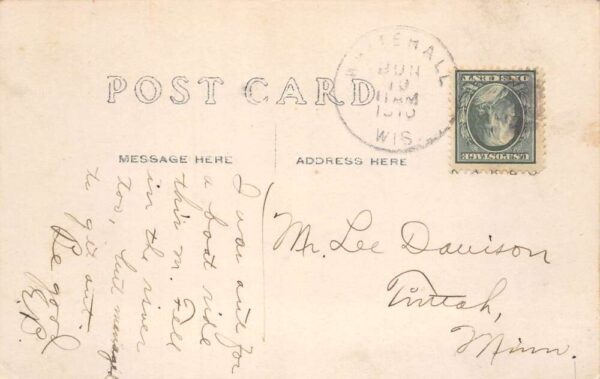 POST CARD
WHITEHALL
JUN
10
11 AM
1910
WIS.
ONE CENT
U.S. POSTAGE
MESSAGE HERE
ADDRESS HERE
I was out for
a boat ride
this m. Fell
in the river
too, but managed
to get out.
Be good
E.B.
Mr. Lee Davison
Tintah,
Minn.